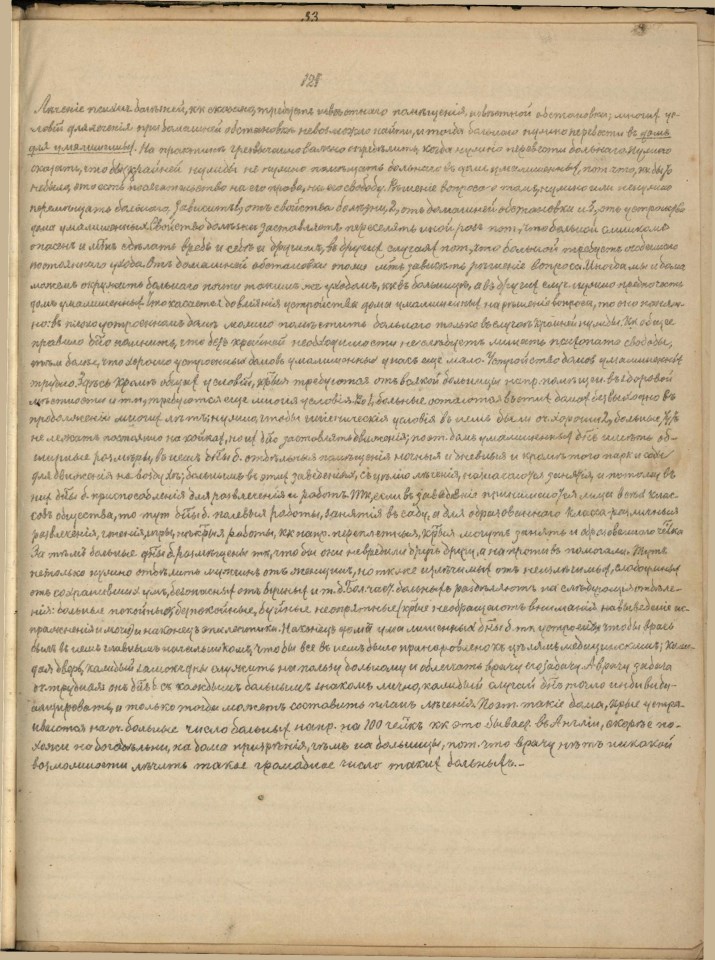 53
128
Лѣченіе психич болѣзней, кк сказано, требуетъ извѣстнаго помѣщенія, извѣстной обстановки; многих ус-
ловій для лѣченія при домашней обстановкѣ невозможно найти, и тогда больного нужно перевести въ домъ
для умалишенных. На практикѣ чрезвычайно важно опредѣлить, когда нужно перевести больнаго. Нужно
сказать, что безъ крайней нужды не нужно помѣщать больнаго въ домъ умалишенных, пот. что, кк бы то
небыло, это есть посягательство на его право, на его свободу. Рѣшеніе вопроса о томъ, нужно или ненужно
перемѣщать больнаго, зависитъ 1, отъ свойства болѣзни, 2, отъ домашней обстановки и 3, отъ устройства
дома умалишенных. Свойство должно заставлять переселять иной разъ пот. что больной слишкомъ
опасенъ и мбтъ сдѣлать вредъ и себѣ и другимъ, въ других случаях пот. что больной требуетъ особеннаго
постояннаго ухода. Отъ домашней обстановки тоже мбтъ зависѣть рѣшеніе вопроса. Иногда мы и дома
можемъ окружить больнаго почти такимъ же уходомъ, кк въ больницѣ, а въ других случ. нужно предпочесть
домъ умалишенных. Что касается до вліянія устройства дома умалишенных на рѣшеніе вопроса, то оно понят-
но: въ плохо устроенный домъ можно помѣстить больнаго только въ случаѣ крайней нужды. Кк общее
правило бдто помнить, что безъ крайней необходимости не слѣдуетъ лишать психопата свободы,
тѣмъ болѣе, что хорошо устроенных домовъ умалишенных у насъ еще мало. Устройство домовъ умалишенных
трудно. Здѣсь кромѣ общих условій, крыя требуются отъ всякой больницы напр. помѣщен. въ здоровой
мѣстности и тп, требуются еще многія условія: 1, больные остаются въ этих домах безвыходно въ
продолженіи многих лѣтъ; нужно, чтобы гигіеническія условія въ немъ были оч. хороши 2, больные
не лежатъ постоянно на койках, но их бдто заставлять движенія; поэт. домъ умалишенных бтъ имѣть об-
ширные размѣры, въ немъ бны б. отдѣльныя помѣщенія ночныя и дневныя и кромѣ того паркъ и садъ
для движенія на воздухѣ; больнымъ въ этих заведеніях, съ цѣлію лѣченія, назначаются занятія, и потому, въ
них бны б. приспособленія для развлеченія и работъ. Тк, если въ заведеніе принимаются лица всѣх клас-
совъ общества, то тут бны б. полевыя работы, занятія въ саду, а для образованнаго класса различныя
развлеченія, чтенія, игры, нѣкрыя работы, кк напр. переплетныя, крыя могутъ занять и образованнаго члка
За тѣмъ больные дны б. размѣщены тк, что бы они невредили другъ другу, а напротивъ помогали. Тутъ
не только нужно отдѣлить мужчинъ отъ женщинъ, но также излѣчимых отъ неизлѣчимых, слабоумных
отъ сохранивших умъ, безопасных отъ буйных и т.д. Бол. часть больных раздѣляютъ на слѣдующія отдѣле-
нія: больные покойные, безпокойные, буйные неопрятные (крые необращаютъ вниманія на выведеніе ис-
пражненія и мочи) и наконецъ эпилептики. Наконецъ дома умалишенных бны б. тк устроены, чтобы врачъ
былъ въ немъ главнымъ начальникомъ, чтобы все въ немъ было приноровлено къ цѣлямъ медицинскимъ; каж-
дая дверь, каждый замокъ дны служить на пользу больному и облегчать врачу его задачу. А врачу задача
оч. трудная онъ бтъ б. съ каждымъ больнымъ знакомъ лично, каждый случай бнъ точно индивиди-
ализировать, и только тогда можетъ составить планъ лѣченія. Поэт. такіе дома, крые устра-
иваются на оч. большое число больных напр. на 100 чел кк это бываетъ въ Англіи, скорѣе по-
хожи на богадѣльни, на дома призрѣнія, чѣмъ на больницы, пот. что врачу нѣтъ никакой
возможности лѣчить такое громадное число таких больных. –